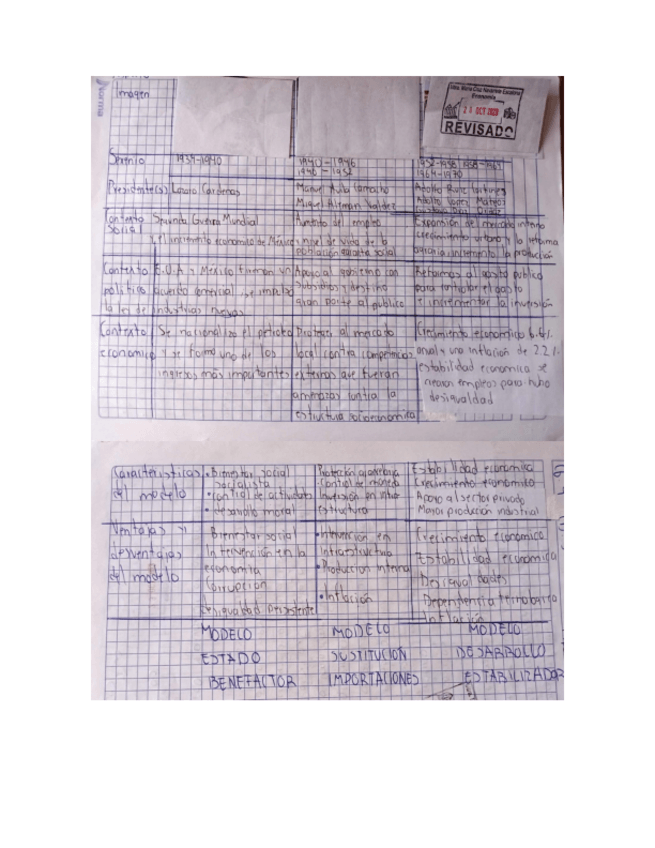 Imagen
Mtra. Maria Cruz Navarrete Escalona
Economía
28 OCT 2020
REVISADO
Sexenio
1934-1940
1940-1946
1946-1952
1952-1958 1958-1964
1964-1970
Presidente(s)
Lazaro Cardenas
Manuel Avila Camacho
Miguel Aleman Valdez
Adolfo Ruiz Cortines
Adolfo Lopez Mateos
Gustavo Diaz Ordaz
Contexto
Social
Segunda Guerra Mundial
y el incremento economico de Mexico
Aumento del empleo
nivel de vida de la
población
social
Expansión del mercado interno
crecimiento urbano y la reforma
agraria incremento la producción
Contexto
politico
E.U.A y Mexico firmaron un
acuerdo comercial se impulso
la ley de industrias nuevas
Apoyo al gobierno con
subsidios y destino
gran parte al publico
Reformas al gasto publico
para controlar el gasto
e incrementar la inversión
Contexto
economico
Se nacionalizo el petroleo
y se formo uno de los
ingresos más importantes
Proteger al mercado
local contra competencias
externas que fueran
amenazas contra la
estructura socioeconomica
Crecimiento economico 6.6%
anual y una inflacion de 2.2%
estabilidad economica se
crearon empleos pero hubo
desigualdad
Caracteristicas
del modelo
• Bienestar social
socialista
• control de actividades
• desarrollo moral
Control de moneda
Inversion en infra-
estructura
Estabilidad economica
Crecimiento economico
Apoyo al sector privado
Mayor producción industrial
Ventajas y
desventajas
del modelo
Bienestar social
Intervención en la
economia
Corrupcion
desigualdad persistente
• Intervencion en
Infraestructura
• Produccion interna
• Inflación
Crecimiento economico
Estabilidad economica
Desigualdades
Dependencia
Inflación
MODELO
ESTADO
BENEFACTOR
MODELO
SUSTITUCION
IMPORTACIONES
MODELO
DESARROLLO
ESTABILIZADOR